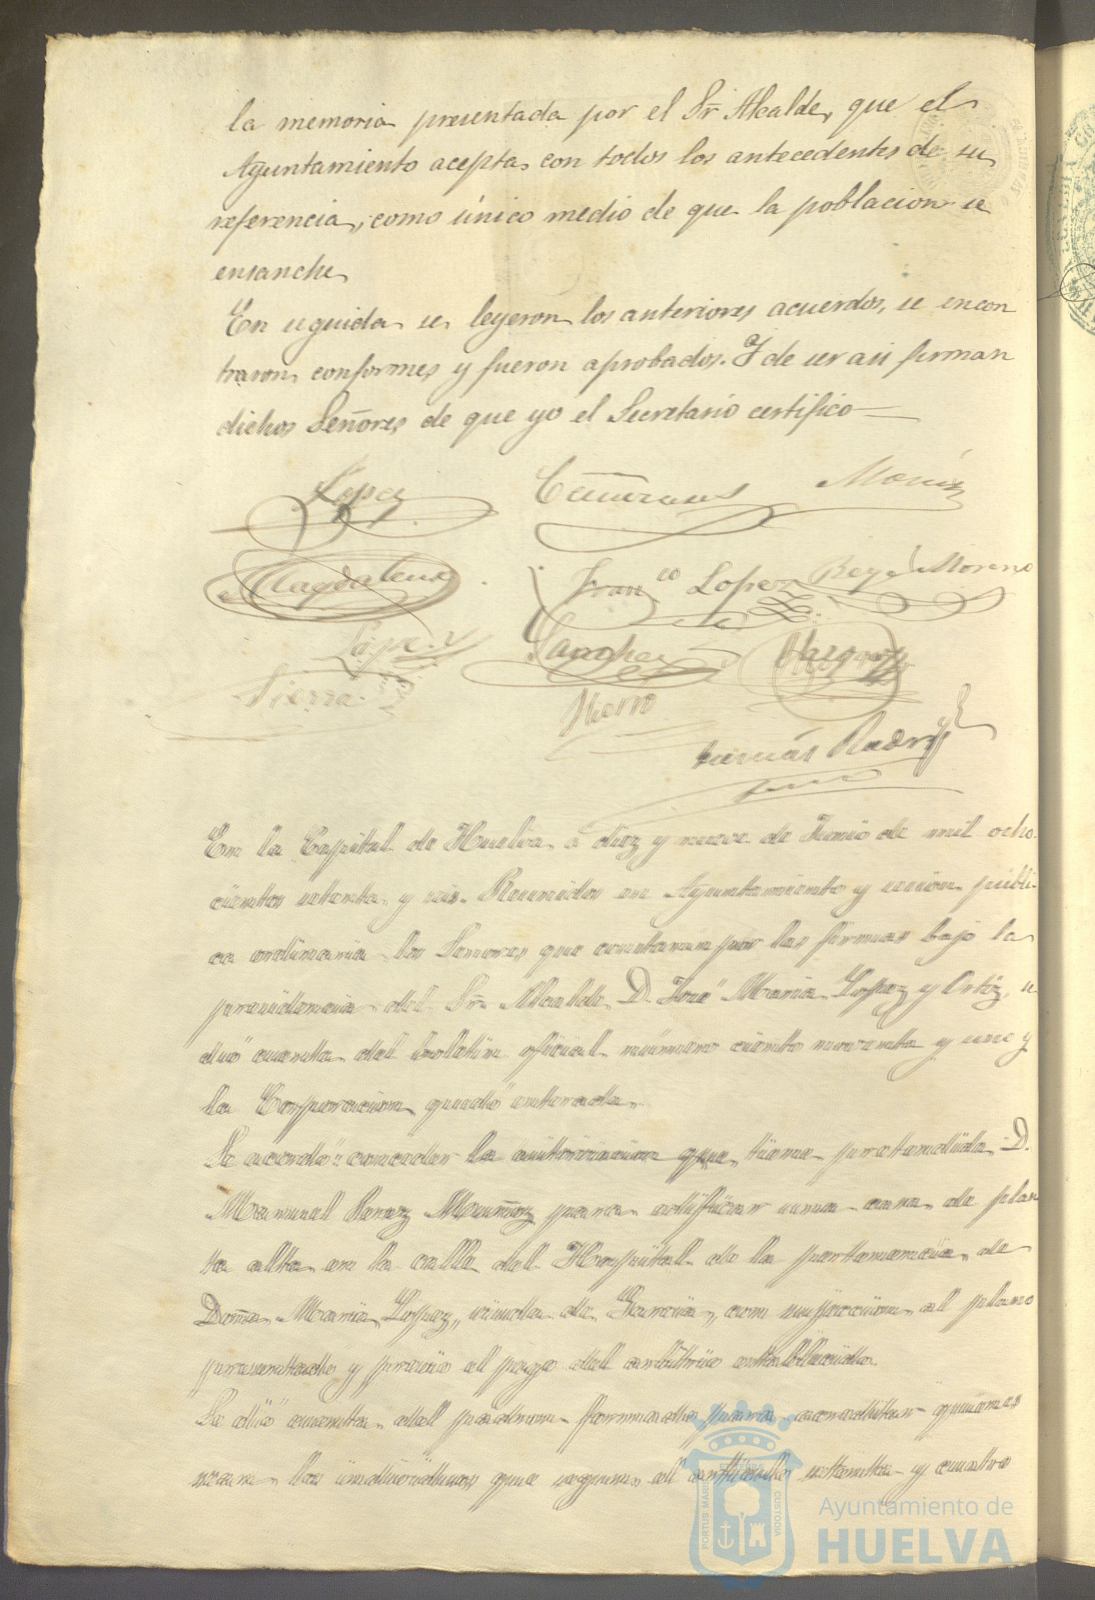 la memoria presentada por el Sr Alcalde, que el
Ayuntamiento acepta con todos los antecedentes de su
referencia, como único medio de que la poblacion se
ensanche
En seguida se leyeron los anteriores acuerdos, se encon
traron conformes y fueron aprobados. Y de ser asi firman
dichos Señores de que yo el Secretario certifico
Lopez
Morón
Magdalena
Franco Lopez
Rey Moreno
Lopez
Sanchez
Vazquez
Sierra
En la Capital de Huelva á diez y nueve de Junio de mil ocho
cientos setenta y seis. Reunidos en Ayuntamiento y sesion públi
ca ordinaria los Señores que constaran por las firmas bajo la
presidencia del Sr. Alcalde D. José Maria Lopez y Ortiz, se
dió cuenta del boletin oficial número ciento noventa y uno y
la Corporacion quedó enterada.
Se acordó conceder la autorizacion que tiene pretendida D.
Manuel Perez Muñoz para edificar una casa de plan
ta alta en la calle del Hospital de la pertenencia de
Doña Maria Lopez, viuda de Garcia, con sujecion al plano
presentado y previo el pago del arbitrio establecido.
Se dió cuenta del padron formado para acreditar quienes
sean los individuos que segun el articulo setenta y cuatro
PORTUS MARIS
CUSTODIA
Ayuntamiento de
HUELVA